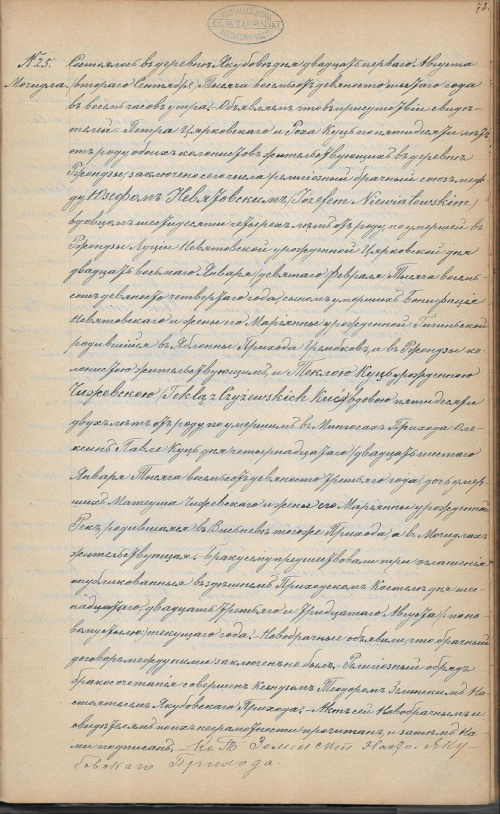 73.
№ 25.
Могидла.
Состоялось въ деревнѣ Якубовѣ дня двадцать перваго Августа
/втораго Сентября/ тысяча восемьсотъ девяносто года
въ восемь часовъ утра. Объявляемъ что въ присутствіи свидѣ-
телей: Петра Цярковскаго и Роха Куць по пятидесяти лѣтъ
отъ роду обоихъ колонистовъ жительствующихъ въ деревнѣ
Ржондзы, заключено сего числа религіозный брачный союзъ меж-
ду Юзефомъ Невятовскимъ /Józefem Niewiatowskim/
вдовцомъ шестидесяти четырехъ лѣтъ отъ роду, по умершей въ
Ржондзы Луціи Невятовской урожденной Цярковской дня
двадцать восьмаго Января /девятаго Февраля/ тысяча восемь-
сотъ девяносто четвертаго года, сыномъ умершихъ Бонифація
Невятовскаго и жены его Маріянны урожденной
родившійся въ Яблонны Прихода и въ Ржондзы ко-
лонистою жительствующимъ, и Теклою Куць урожденною
Чижевскою /Teklą z Czyżewskich Kuć/ вдовою пятидесяти
двухъ лѣтъ отъ роду по умершимъ въ Мингосахъ Прихода Оле-
ксинъ Павле Куць дня четырнадцатаго /двадцать шестаго/
Января тысяча восемьсотъ девяносто третьяго года, дочь умер-
шихъ Матеуша Чижевскаго и жены его Маріянны урожденной
Рекъ, родившаяся въ Висневѣ тогоже Прихода, а въ Могидлахъ
жительствующая. Браку сему предшествовали три оглашенія
опубликованныя въ здѣшнемъ Приходскомъ Костелѣ дня шест-
надцатаго, двадцать третьяго и тридцатаго Августа /по но-
вому стилю/ текущаго года. Новобрачные объявили, что брачный
договоръ между ними заключенъ не былъ. Религіозный обрядъ
бракосочетанія совершенъ Ксендзомъ Теодоромъ Земінскимъ На-
стоятелемъ Якубовскаго Прихода. Актъ сей Новобрачнымъ и
свидѣтелямъ по ихъ неграмотности прочитанъ, и затѣмъ На-
ми подписанъ. Кс. Т. Земінскій Насто. Яку-
бовскаго Прихода.